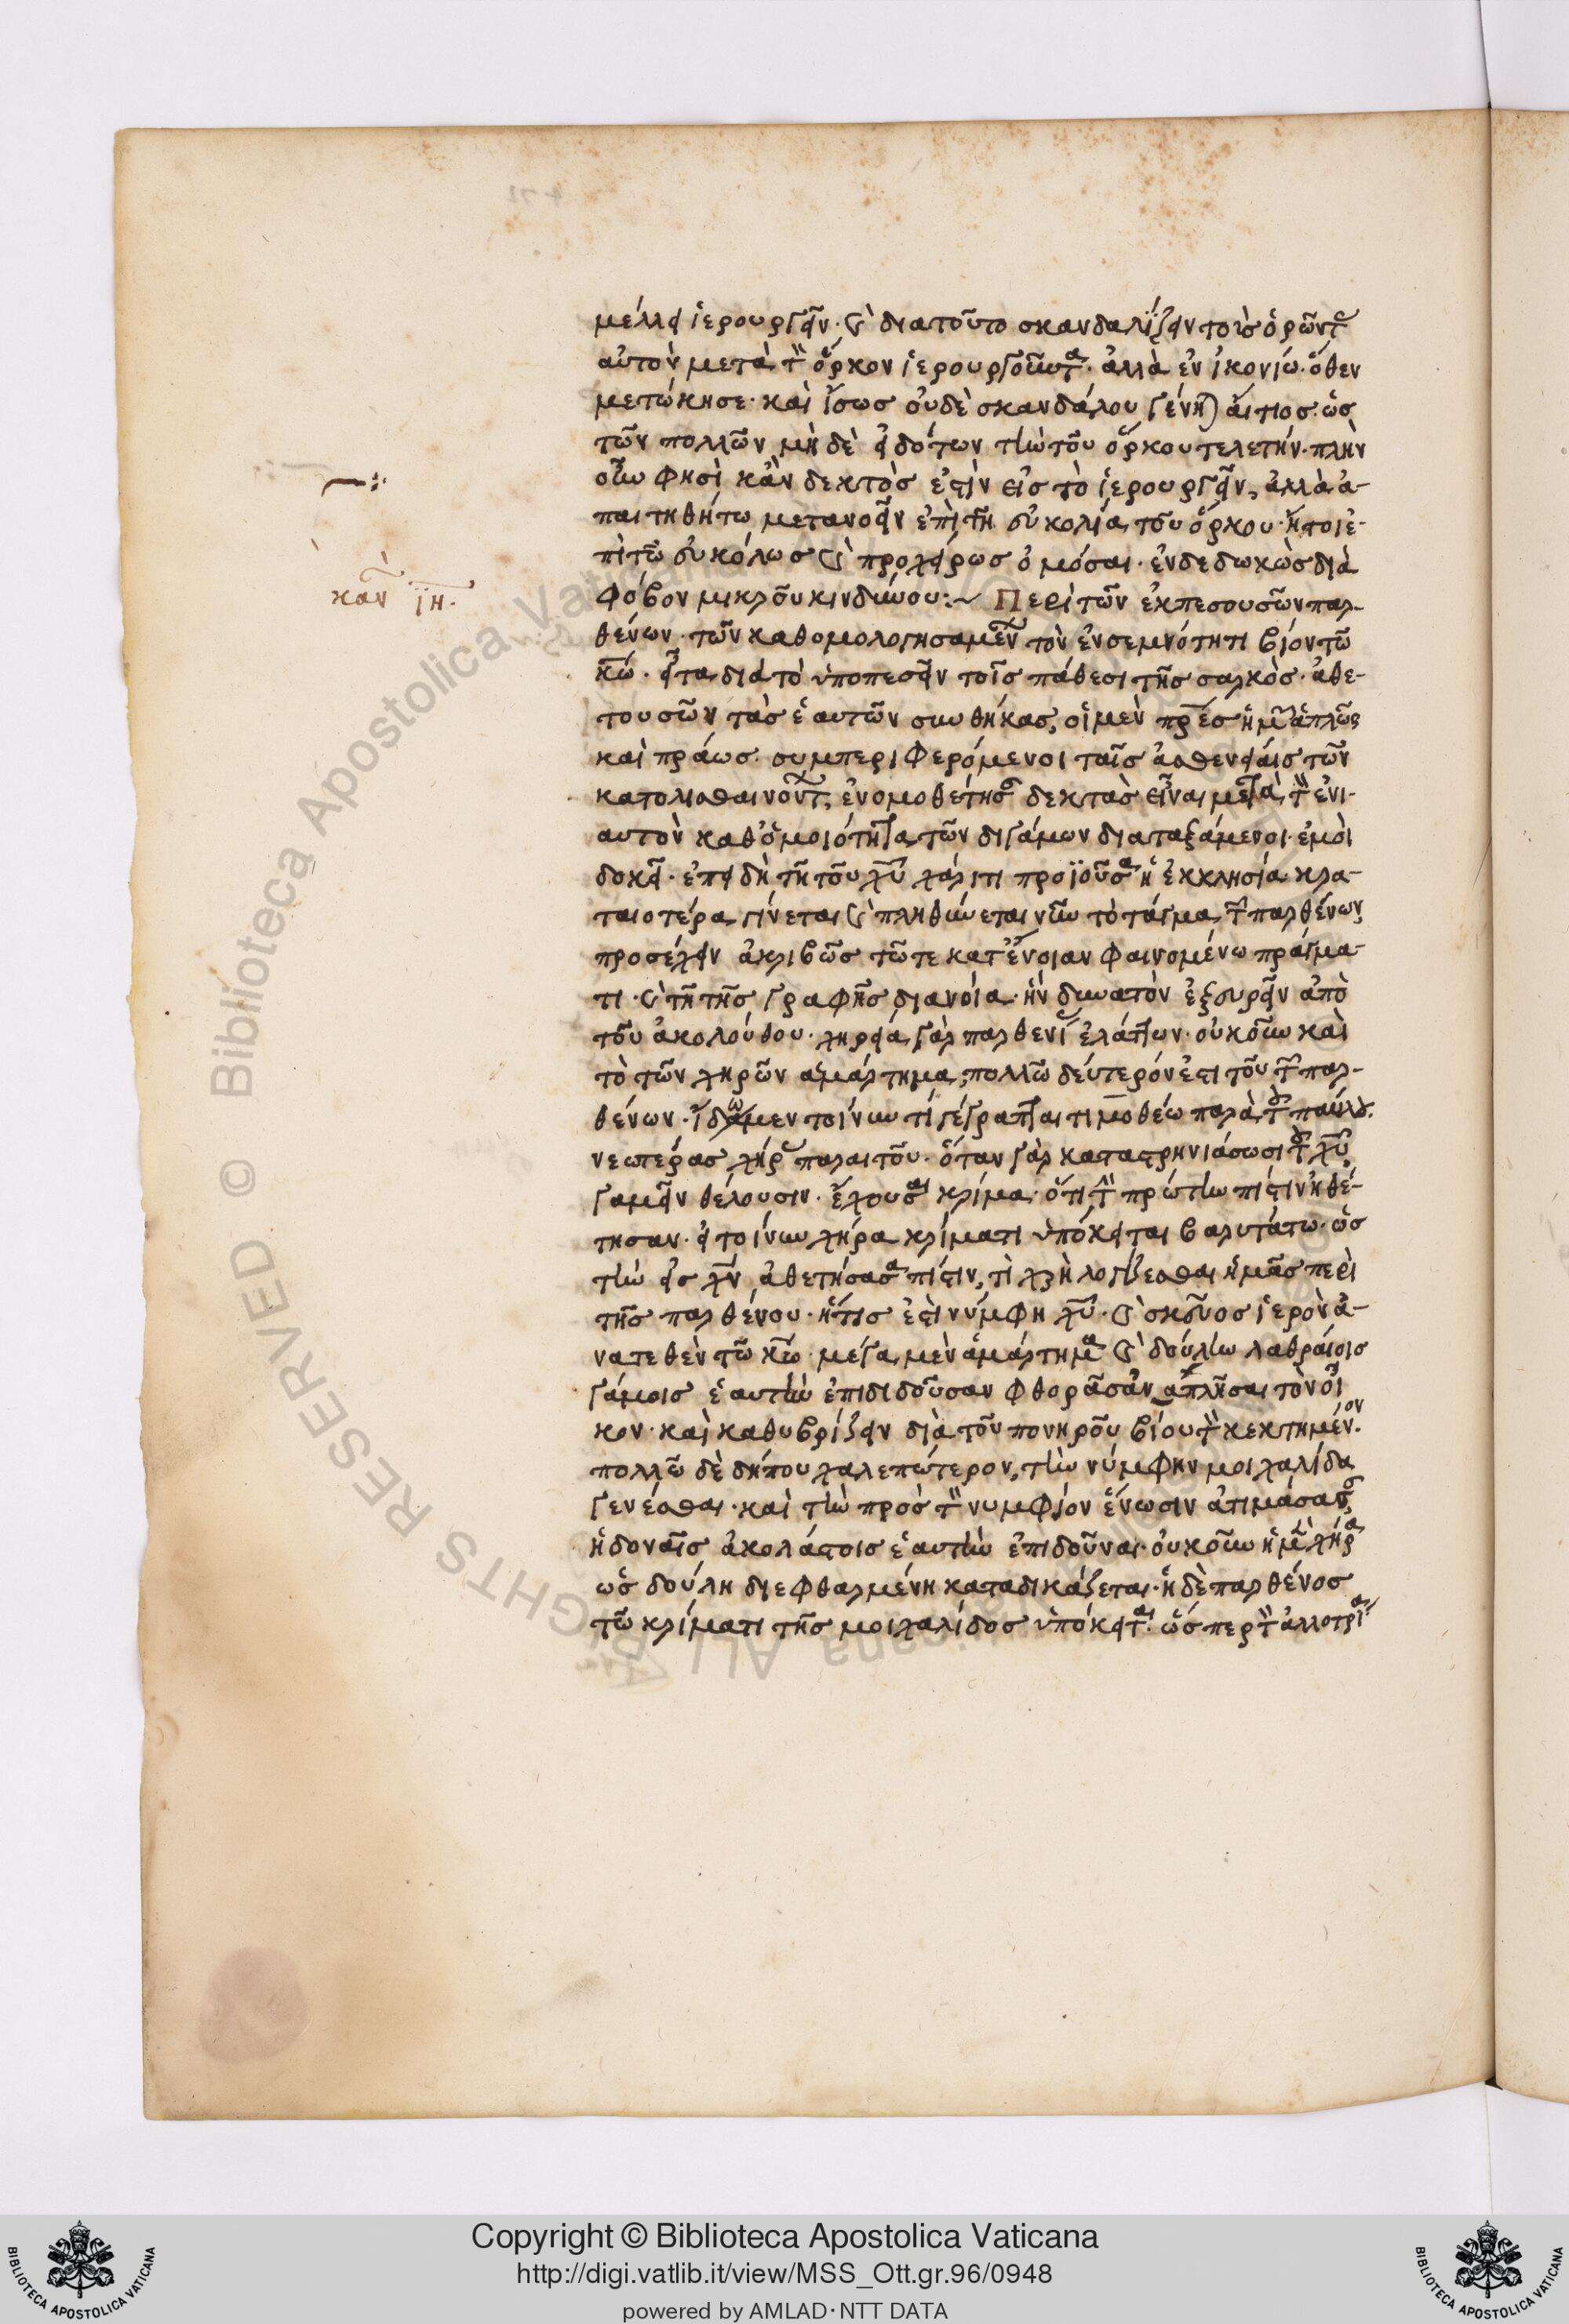 μέλλει ἱερουργεῖν· καὶ διατοῦτο σκανδαλίζειν τοὺσ ὁρῶντ
αὐτὸν μετὰ τ ὅρκον ἱερουργοῦντα· ἀλλὰ ἐν ἰκονίω· ὅθεν
μετώκησε· καὶ ἴσωσ οὐδὲ σκανδάλου γένηται αἴτιοσ· ὡσ
τῶν πολλῶν μὴ δὲ εἰδότων τὴν τοῦ ὅρκου τελετήν· πλὴν
οὖν φησὶ κἂν δεκτὸσ ἐστὶν εἰσ τὸ ἱερουργεῖν, ἀλλὰ ἀ-
παιτηθήτω μετανοεῖν ἐπὶ τῆ εὐκολία τοῦ ὅρκου· ἤτοι ἐ-
πὶ τῶ εὐκόλωσ καὶ προχείρωσ ὀμόσαι· ἐνδεδωκὼσ διὰ
καν ιη·
φόβον μικροῦ κινδύνου:~ Περὶ τῶν ἐκπεσουσῶν παρ-
θένων· τῶν καθομολογησαμέν τὸν ἐν σεμνότητι βίον τῶ
κῶ· εἶτα διὰ τὸ ὑποπεσεῖν τοῖσ πάθεσι τῆσ σαρκὸσ· ἀθε-
τουσῶν τὰσ ἑαυτῶν συνθήκασ, οἱ μὲν πρέσ ἡμ ἁπλῶς
καὶ πράωσ συμπεριφερόμενοι ταῖσ ἀσθενείαισ τῶν
κατολισθαινόντ, ἐνομοθέτησ δεκτὰσ εἶναι μετὰ τ ἐνι-
αυτὸν καθ' ὁμοιότητα τῶν διγάμων διαταξάμενοι· ἐμοὶ
δοκεῖ· ἐπειδὴ τῆ τοῦ χυ χάριτι προϊοῦσα ἡ ἐκκλησία κρα-
ταιοτέρα γίνεται καὶ πληθύνεται νῦν τὸ τάγμα τ παρθένων
προσέχειν ἀκριβῶσ τῶ τε κατ' ἔννοιαν φαινομένω πράγμα-
τι· καὶ τῆ τῆσ γραφῆσ διανοία· ἣν δυνατὸν ἐξευρεῖν ἀπὸ
τοῦ ἀκολούθου· χηρεία γὰρ παρθενί ἐλάττων· οὐκοῦν καὶ
τὸ τῶν χηρῶν ἁμάρτημα, πολλῶ δεύτερόν ἐστι τοῦ τ παρ-
θένων· ἴδωμεν τοίνυν τί γέγραπται τιμοθέω παρὰ τ παύλου.
νεωτέρασ χήρ παραιτοῦ· ὅταν γὰρ καταστρηνιάσωσι τ χυ
γαμεῖν θέλουσιν· ἔχουσαι κρίμα· ὅτι τ πρώτην πίστιν ἠθέ-
τησαν· εἰ τοίνυν χήρα κρίματι ὑπόκειται βαρυτάτω· ὡσ
τὴν εἰσ χν ἀθετήσασα πίστιν, τὶ χρὴ λογίζεσθαι ἡμᾶσ περὶ
τῆσ παρθένου· ἥτισ ἐστὶ νύμφη χυ· καὶ σκεῦοσ ἱερὸν ἀ-
νατεθὲν τῶ κω· μέγα μὲν ἁμάρτημα καὶ δούλην λαθραίοισ
γάμοισ ἑαυτὴν ἐπιδιδοῦσαν φθορᾶσ ἀναπλῆσαι τὸν οἶ
κον· καὶ καθυβρίζειν διὰ τοῦ πονηροῦ βίου τ κεκτημένον.
πολλῶ δὲ δήπου χαλεπώτερον, τὴν νύμφην μοιχαλίδα
γενέσθαι· καὶ τὴν πρὸσ τ νυμφίον ἕνωσιν ἀτιμάσασ
ἡδοναῖσ ἀκολάστοισ ἑαυτὴν ἐπιδοῦναι· οὐκοῦν ἡ μ χήρα
ὡσ δούλη διεφθαρμένη καταδικάζεται· ἡ δὲ παρθένοσ
τῶ κρίματι τῆσ μοιχαλίδοσ ὑπόκειται· ὥσπερ τ ἀλλοτρία
Copyright © Biblioteca Apostolica Vaticana
http://digi.vatlib.it/view/MSS_Ott.gr.96/0948
powered by AMLAD·NTT DATA
BIBLIOTECA APOSTOLICA VATICANA
BIBLIOTECA APOSTOLICA VATICANA